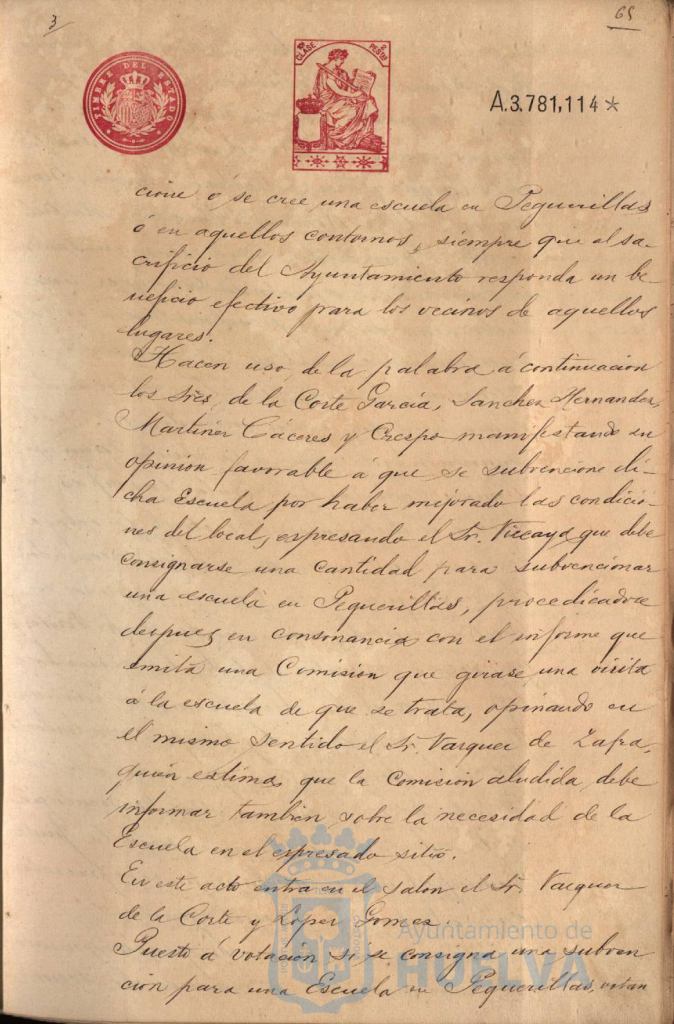 3
65
TIMBRE DEL ESTADO
10ª CLASE
2 PESETAS
A.3,781,114*
cione ó se cree una escuela en Peguerillas
ó en aquellos contornos, siempre que al sa-
crificio del Ayuntamiento responda un be-
neficio efectivo para los vecinos de aquellos
lugares.
Hacen uso de la palabra á continuacion
los Sres. de la Corte García, Sanchez Hernandez,
Martinez Cáceres y Crespo manifestando su
opinion favorable á que se subvencione di-
cha Escuela por haber mejorado las condicio-
nes del local, espresando el Sr. Vizcaya que debe
consignarse una cantidad para subvencionar
una escuela en Peguerillas, procediendose
despues en consonancia con el informe que
emita una Comision que girase una visita
á la escuela de que se trata, opinando en
el mismo sentido el Sr. Vazquez de Zafra,
quien estima que la Comision aludida debe
informar tambien sobre la necesidad de la
Escuela en el espresado sitio.
En este acto entra en el salon el Sr. Vazquez
de la Corte y Lopez Gomez.
Puesto á votacion si se consigna una subven
cion para una Escuela en Peguerillas, votan
Ayuntamiento de
HUELVA